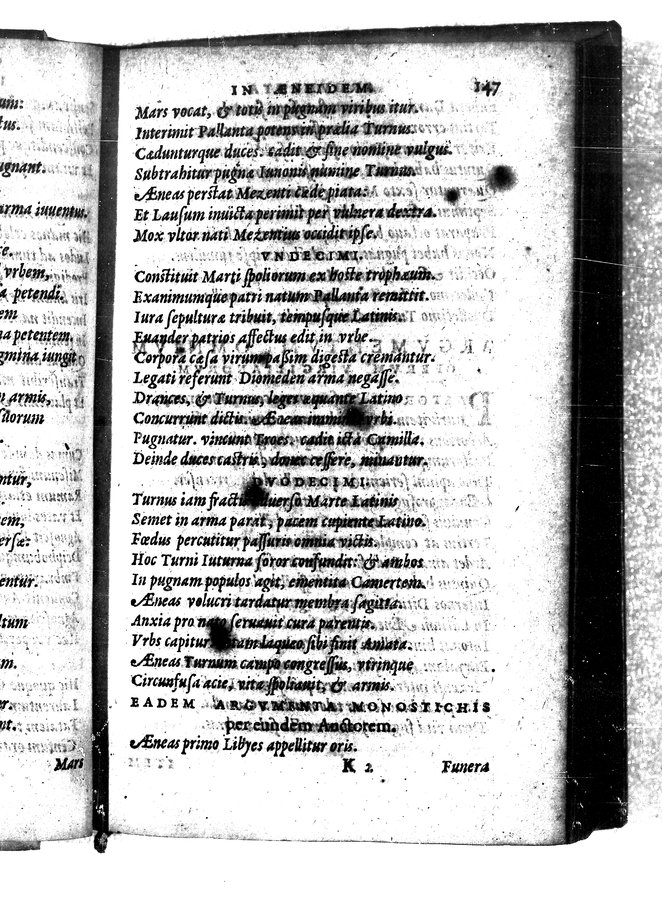 um:
tus.
ugnant.
arma iuuentus.
e.
vrbem,
a petendi.
em
na petentem,
gmina iungit
armis,
ſtorum
ntur,
tem,
erſæ:
entur.
ltum
m.
r.
nt.
Mars
IN ÆNEIDEM. 147
Mars vocat, & totis in pugnam viribus itur.
Interimit Pallanta potens in prælia Turnus.
Cædunturque duces. cadit & ſine nomine vulgus.
Subtrahitur pugnæ Iunonis numine Turnus.
Æneas perſtat Mezenti cæde piata:
Et Lauſum inuicta perimit per vulnera dextra.
Mox vltor nati Mezentius occidit ipſe.
VNDECIMI.
Conſtituit Marti ſpoliorum ex hoſte trophæum.
Exanimumque patri natum Pallanta remittit.
Iura ſepulturæ tribuit, tempuſque Latinis.
Euander patrios affectus edit in vrbe.
Corpora cæſa virum paſsim digeſta cremantur.
Legati referunt Diomeden arma negaſſe.
Drances, & Turnus, leges æquante Latino
Concurrunt dictis. Æneas imminet vrbi.
Pugnatur. vincunt Troes. cadit icta Camilla.
Deinde duces caſtris, donec ceſſere, minantur.
DVODECIMI.
Turnus iam fractis aduerſo Marte Latinis
Semet in arma parat, pacem cupiente Latino.
Fœdus percutitur paſſuris omnia victis.
Hoc Turni Iuturna ſoror confundit: & ambos
In pugnam populos agit, ementita Camertem.
Æneas volucri tardatur membra ſagitta.
Anxia pro nato ſeruauit cura parentis.
Vrbs capitur. laqueo ſibi finit Amata.
Æneas Turnum campo congreſſus, vtrinque
Circunfuſa acie, vita ſpoliauit, & armis.
EADEM ARGVMENTA MONOSTICHIS
per eundem Auctorem.
Æneas primo Libyes appellitur oris.
K 2 Funera